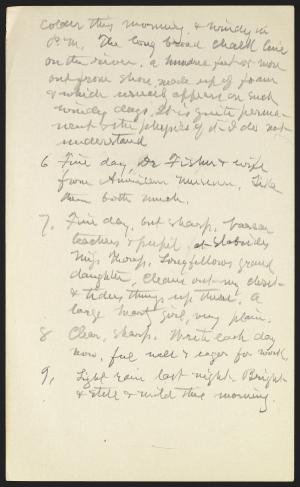 Colder this morning, & windy in
P.M. The long broad chalk line
on the river, a hundred feet or more
out from shore, made up of foam
& which usually appears on such
windy days. It is quite perma-
nent & the physics of it I do not
understand
6 Fine day, Dr Fisher & wife
from American Museum. Like
them both much.
7, Fine day, but sharp. Vassar
teachers & pupil, at Slabsides
Miss Thorp, Longfellows grand
daughter, cleans out my closet
& tidies things up there. A
large heart girl, very plain.
8 Clear, sharp. Write each day
now, feel well & eager for work.
9, Light rain last night. Bright
& still & mild this morning.